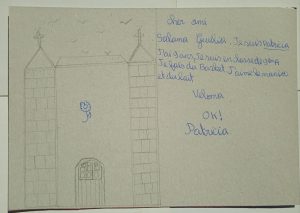 Cher ami
Salama Je suis Patricia
J'ai 9 ans, Je suis en classe de
Je fais du Basket. J'aime le manioc
et du lait
Veloma
OK!
Patricia